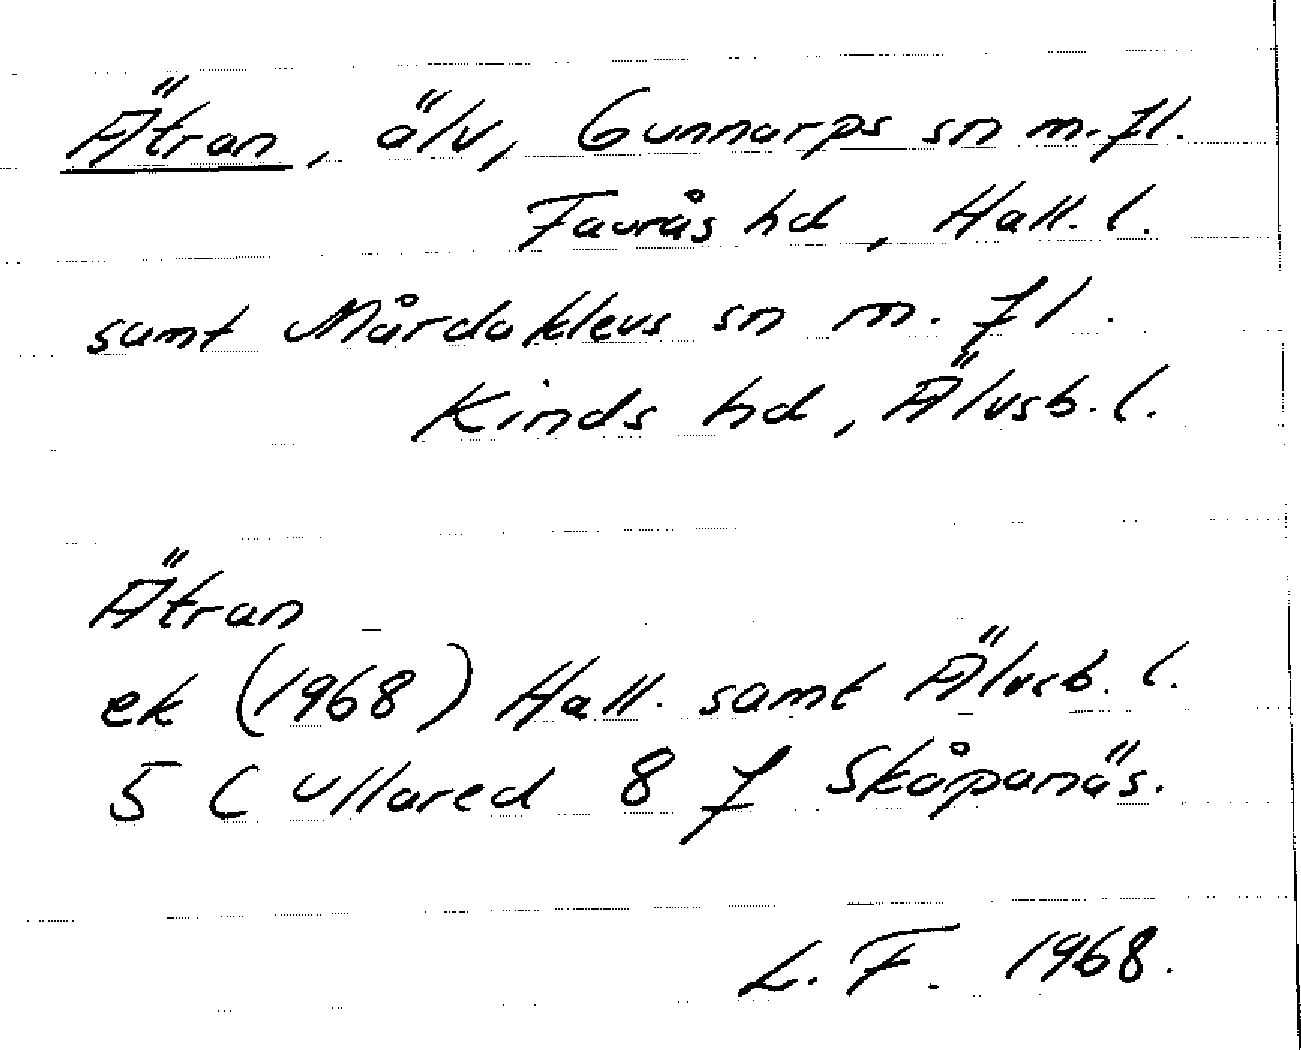 Ätran, älv, Gunnarps sn m.fl.
Faurås hd, Hall. l.
samt Mårdaklevs sn m. fl.
Kinds hd, Älvsb. l.
Ätran
ek (1968) Hall. samt Älvsb. l.
5 C Ullared 8 f Skåpanäs.
L. F. 1968.